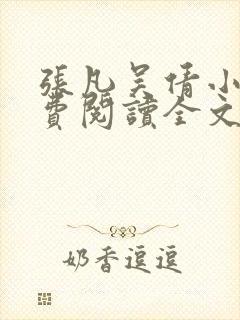 張凡吴倩小
費閱讀全文
奶香逗逗